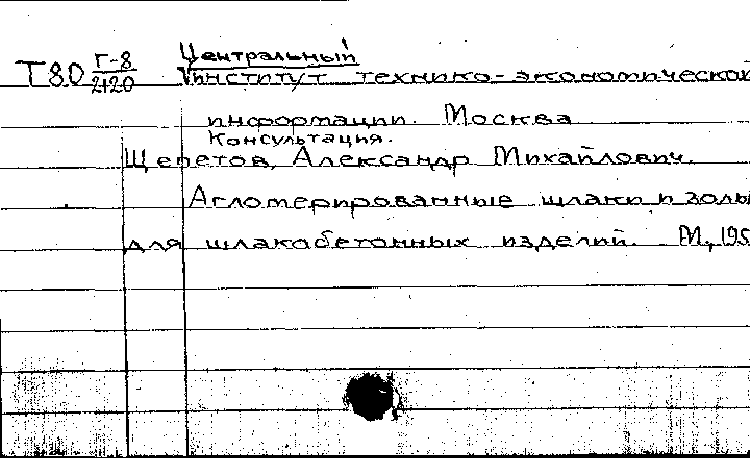 Т80 Г-8/2120 Центральный
институт технико-экономической
информации. Москва
Консультация.
Щепетов, Александр Михайлович.
Агломерированные шлаки и золы
для шлакобетонных изделий. М., 195